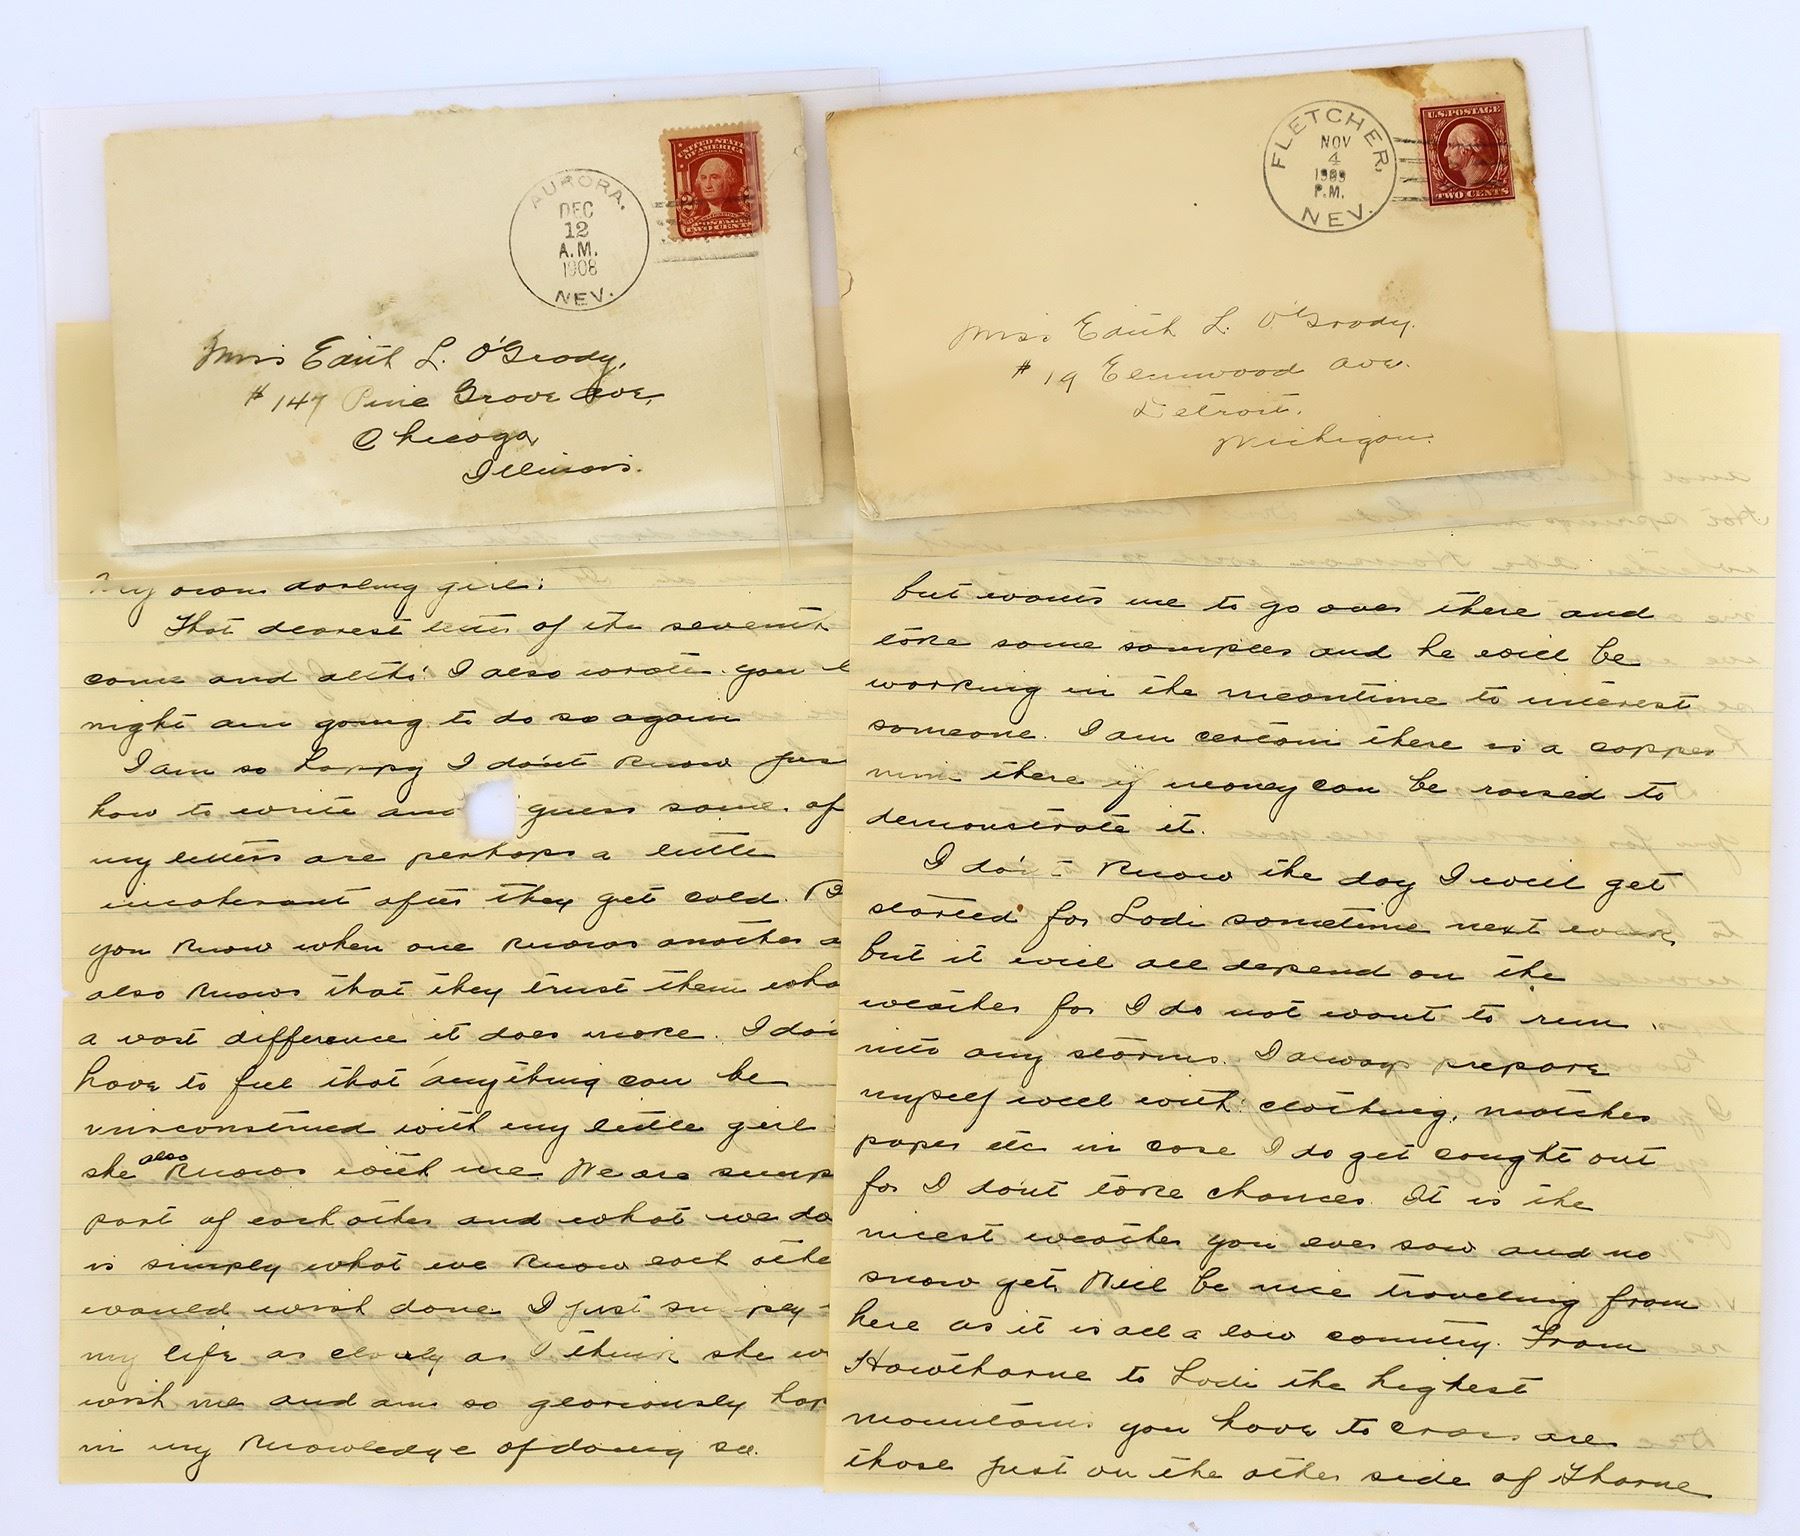 AURORA.
DEC
12
A.M.
1908
NEV.
UNITED STATES
OF AMERICA
POSTAGE
TWO CENTS
Miss Edith L. O'Grody,
# 147 Pine Grove Ave,
Chicago,
Illinois.
FLETCHER,
NOV
4
1909
P.M.
NEV.
U.S. POSTAGE
TWO CENTS
Miss Edith L. O'Grody.
# 19 Elmwood Ave.
Detroit.
Michigan.
My own darling girl:
That dearest letter of the seventh
come and altho' I also wrote you l
night am going to do so again
I am so happy I don't know jus
how to write and guess some of
my letters are perhaps a little
incoherant after they get cold. B
you know when one knows another a
also knows that they trust them wha
a vast difference it does make. I don
have to feel that anything can be
misconstrued with my little girl
she also knows with me. We are simp
part of each other and what we do
is simply what we know each othe
would wish done. I just simpley
my life as closely as I think she w
wish me and am so gloriously hap
in my knowledge of doing so.
but wants me to go over there and
take some samples and he will be
working in the meantime to interest
someone. I am certain there is a copper
mine there if money can be raised to
demonstrate it.
I don't know the day I will get
started for Lodi sometime next week,
but it will all depend on the
weather for I do not want to run
into any storms. I always prepare
myself well with clothing, matches
paper etc in case I do get caught out
for I don't take chances. It is the
nicest weather you ever saw and no
snow yet. Will be nice traveling from
here as it is all a low country. From
Hawthorne to Lodi the highest
mountains you have to cross are
those just on the other side of Thorne